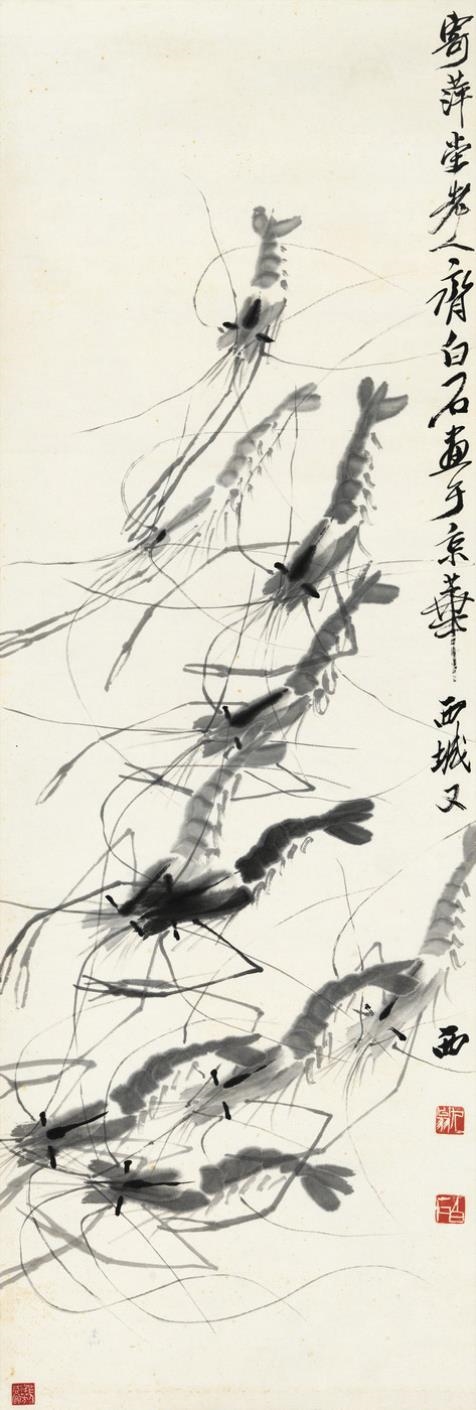 寄萍堂老人齊白石畫于京華西城又西
白石